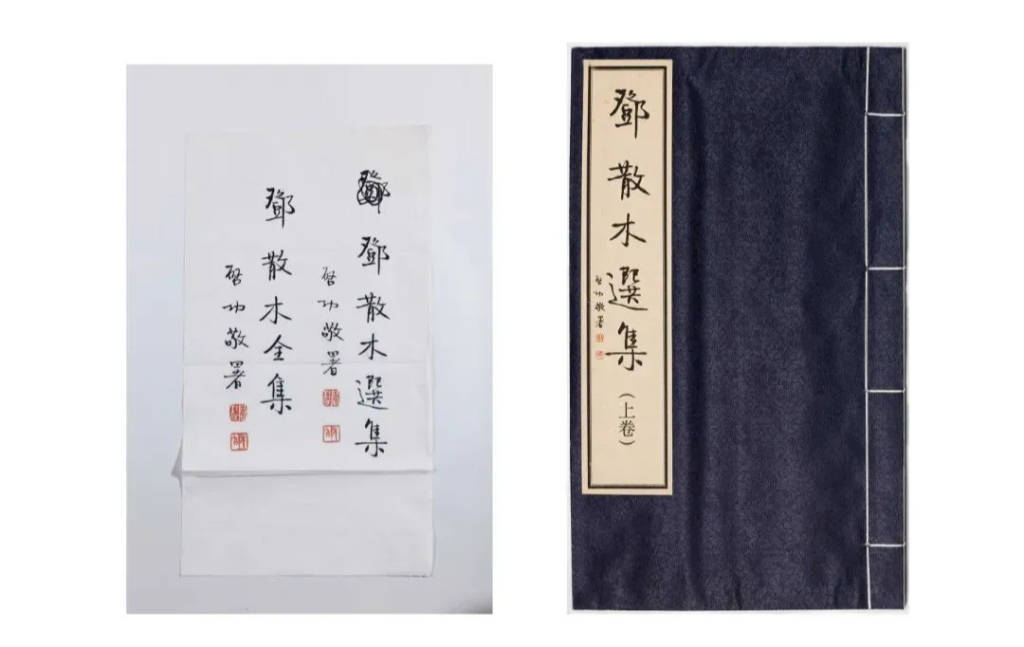 鄧散木選集
啓功敬署
鄧散木全集
啓功敬署
鄧散木選集
啓功敬署
(上卷)